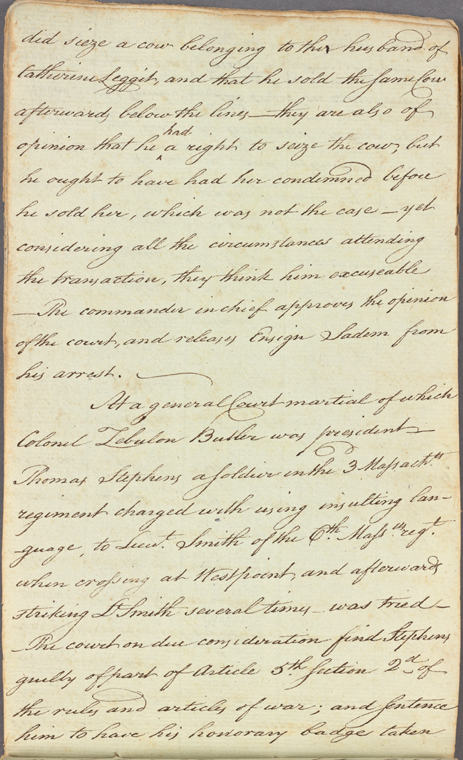 did sieze a cow belonging to the husband of
Catherine Leggit, and that he sold the same Cow
afterwards below the lines — they are also of
opinion that he had a right to seize the cow, but
he ought to have had her condemned before
he sold her, which was not the case — yet
considering all the circumstances attending
the transaction, they think him excuseable
— The commander in chief approves the opinion
of the court, and releases Ensign from
his arrest. —
At a general Court martial of which
Colonel Zebulon Butler was president —
Thomas Stephens a soldier in the 3 Massachts
regiment charged with using insulting lan-
-guage, to Lieut. Smith of the 6th Massts regt.
when crossing at Westpoint, and afterwards
striking Lt Smith several times — was tried —
— The court on due consideration find Stephens
guilty of part of Article 5th Section 2d of
the rules and articles of war; and sentence
him to have his honorary badge taken